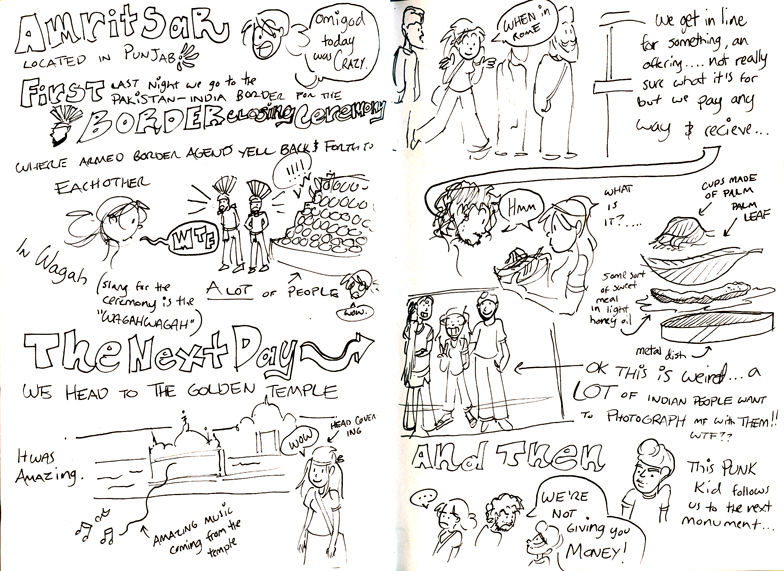 Amritsar
LOCATED IN PUNJAB
omigod
today
was
CRAZY.
First LAST Night we go to the
PAKISTAN-INDIA BORDER FOR THE
BORDER CLOSING CEREMONY
WHERE ARMED BORDER AGENTS YELL BACK & FORTH TO
EACHOTHER
!!!!
WTF
In Wagah
(slang for the
ceremony is the
"WAGAHWAGAH")
A LOT OF PEOPLE
WOW.
The Next Day
WE HEAD TO THE GOLDEN TEMPLE
IT WAS
AMAZING.
WOW
HEAD COVER
ING
AMAZING MUSIC
coming from the
temple
WHEN in
ROME
we get in line
for something, an
offering.... not really
sure what it is for
but we pay any
way & recieve...
Hmm
WHAT
IS
IT?....
CUPS MADE
OF PALM
PALM
LEAF
Some sort
of sweet
meal
in light
honey oil
metal dish
OK THIS is weird... a
LOT OF INDIAN PEOPLE WANT
TO PHOTOGRAPH me with THEM!!
WTF??
And Then
...
WE'RE
NOT
Giving you
MONEY!
This PUNK
Kid follows
us to the next
monument...